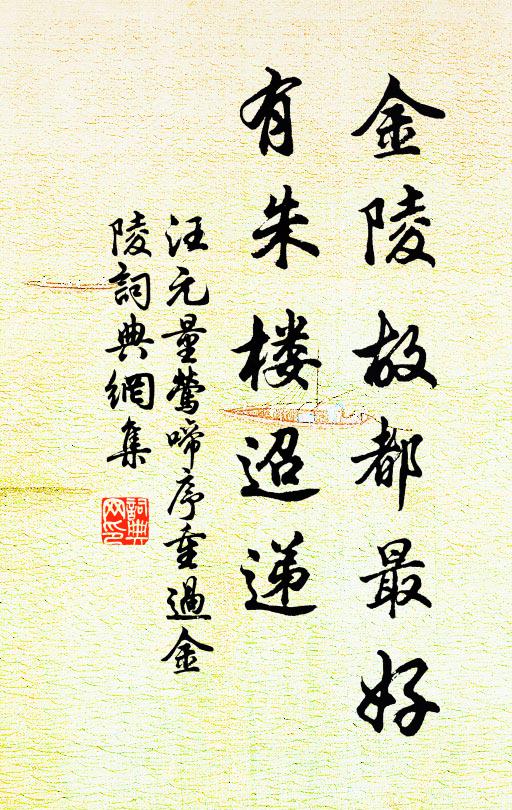 金陵故都最好
有朱楼迢递
汪元量鶯啼序重過金
陵詞典網集
詞典网印